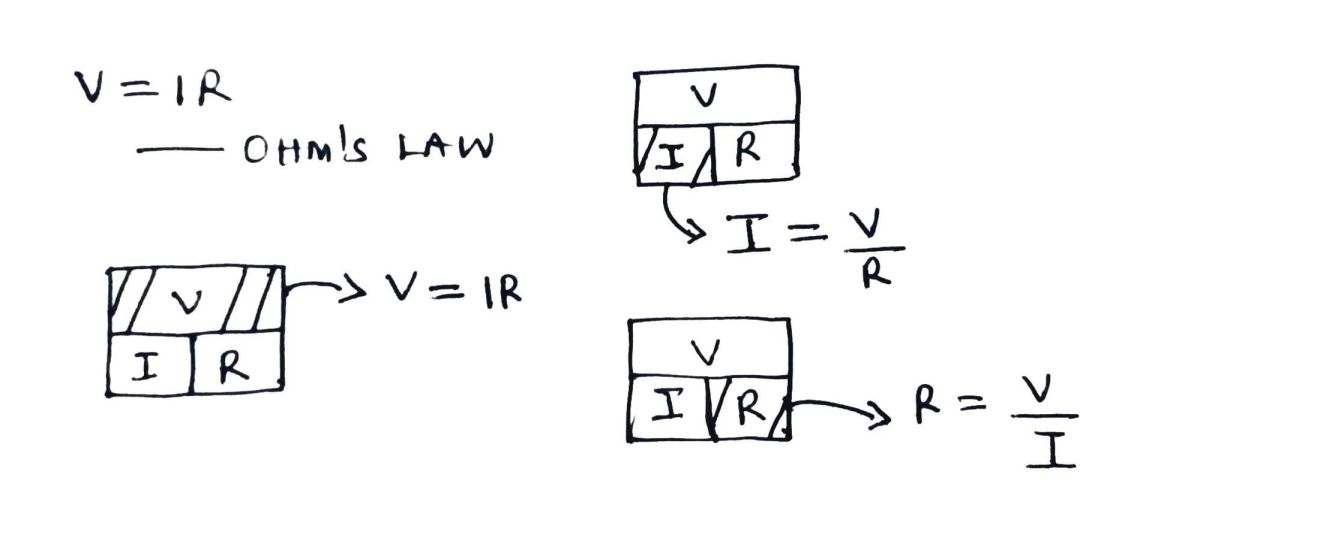 V = IR
— OHM's LAW
V
I R
V = IR
V
I R
I = V/R
V
I R
R = V/I